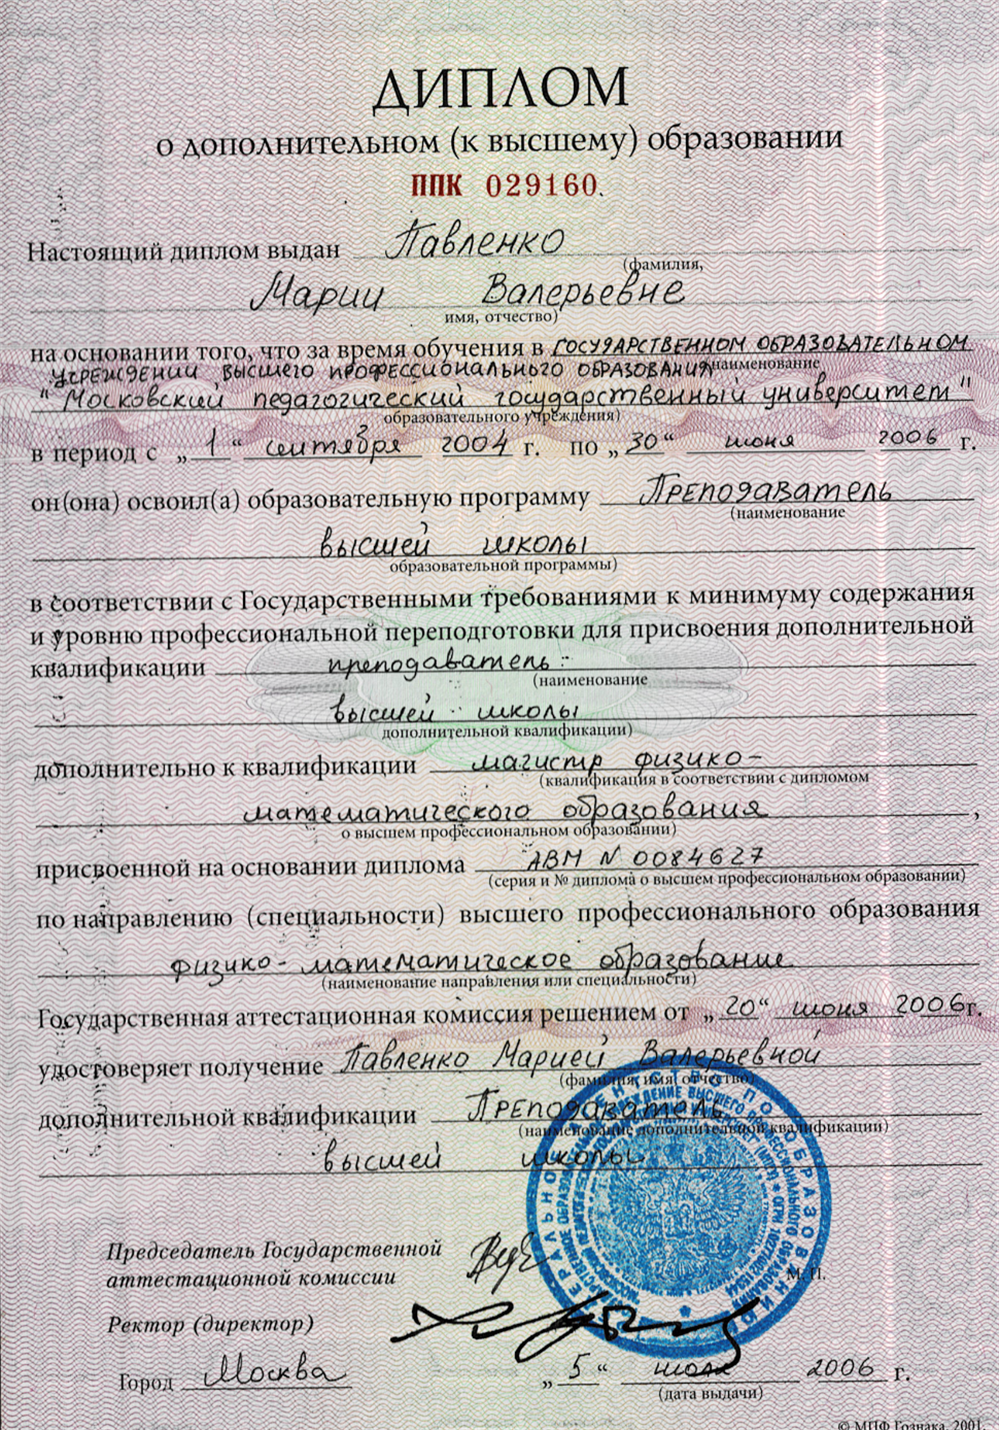 ДИПЛОМ
о дополнительном (к высшему) образовании
ППК 029160
Настоящий диплом выдан Павленко
(фамилия,
Марии Валерьевне
имя, отчество)
на основании того, что за время обучения в Государственном образовательном
учреждении высшего профессионального образования (наименование
"Московский педагогический государственный университет"
образовательного учреждения)
в период с „1“ сентября 2004 г. по „30“ июня 2006 г.
он(она) освоил(а) образовательную программу Преподаватель
(наименование
высшей школы
образовательной программы)
в соответствии с Государственными требованиями к минимуму содержания
и уровню профессиональной переподготовки для присвоения дополнительной
квалификации преподаватель
(наименование
высшей школы
дополнительной квалификации)
дополнительно к квалификации магистр физико-
(квалификация в соответствии с дипломом
математического образования,
о высшем профессиональном образовании)
присвоенной на основании диплома АВМ N 0084627
(серия и № диплома о высшем профессиональном образовании)
по направлению (специальности) высшего профессионального образования
физико-математическое образование
(наименование направления или специальности)
Государственная аттестационная комиссия решением от „20“ июня 2006г.
удостоверяет получение Павленко Марией Валерьевной
(фамилия, имя, отчество)
дополнительной квалификации Преподаватель
(наименование дополнительной квалификации)
высшей школы
Председатель Государственной
аттестационной комиссии
М. П.
Ректор (директор)
Город Москва „5“ июля 2006 г.
(дата выдачи)
© МПФ Гознака, 2001.